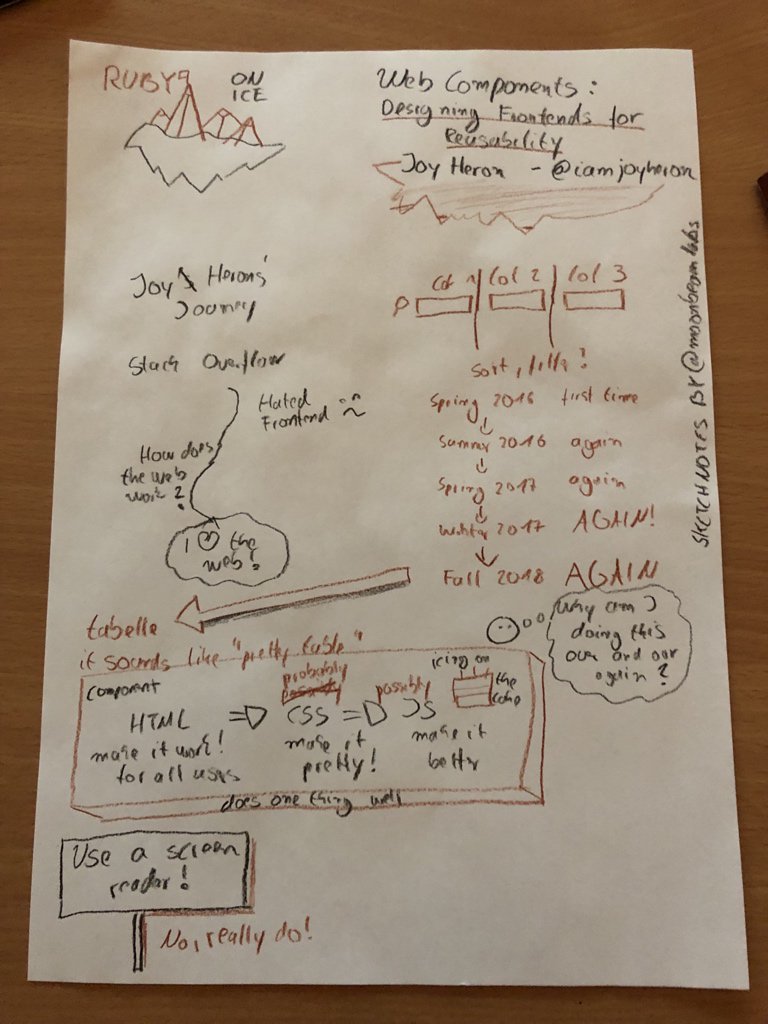 RUBY
ON
ICE
Web Components:
Designing Frontends for
Reusability
Joy Heron - @iamjoyheron
SKETCHNOTES BY @moonbeamlabs
Joy Herons'
Journey
Stack Overflow
Hated
Frontend
How does
the web
work?
I ♡ the
web!
Col 1 Col 2 Col 3
sort, filter?
Spring 2016 first time
Summer 2016 again
Spring 2017 again
Winter 2017 AGAIN!
Fall 2018 AGAIN
Why am I
doing this
over and over
again?
tabelle
it sounds like "pretty table"
component
HTML => CSS => JS
make it work!
for all users
probably
possibly
make it
pretty!
possibly
make it
better
icing on
the
cake
does one thing well
Use a screen
reader!
No, really do!